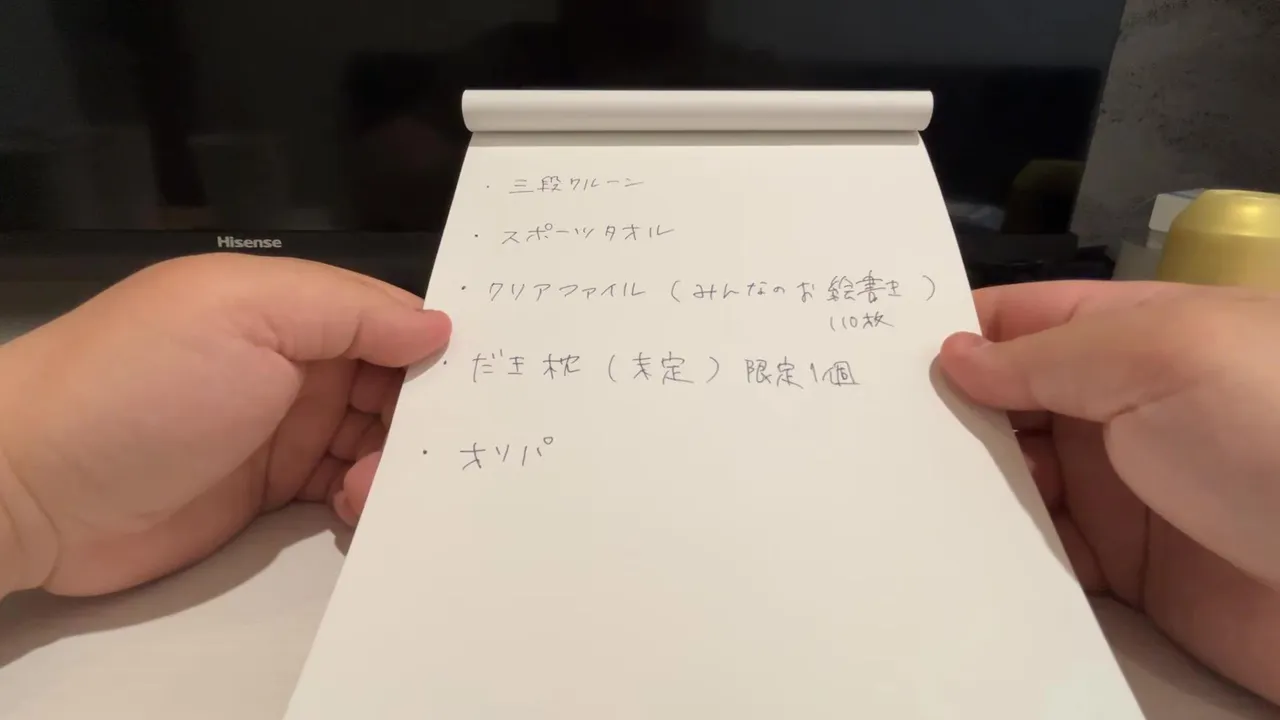 Hisense
・三段クルーン
・スポーツタオル
・クリアファイル（みんなのお絵書き）
110枚
・だき枕（未定）限定1個
・オリパ